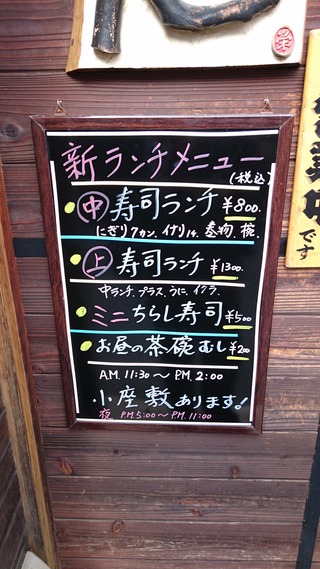 新ランチメニュー
(税込)
中 寿司ランチ ¥800.
にぎり7カン、イナリ1ケ、巻物、椀、
上 寿司ランチ ¥1300.
中ランチ、プラス、うに、イクラ、
ミニちらし寿司 ¥500
お昼の茶碗むし ¥200
A.M. 11:30〜P.M. 2:00
小座敷あります!
夜 P.M 5:00〜P.M. 11:00
中です